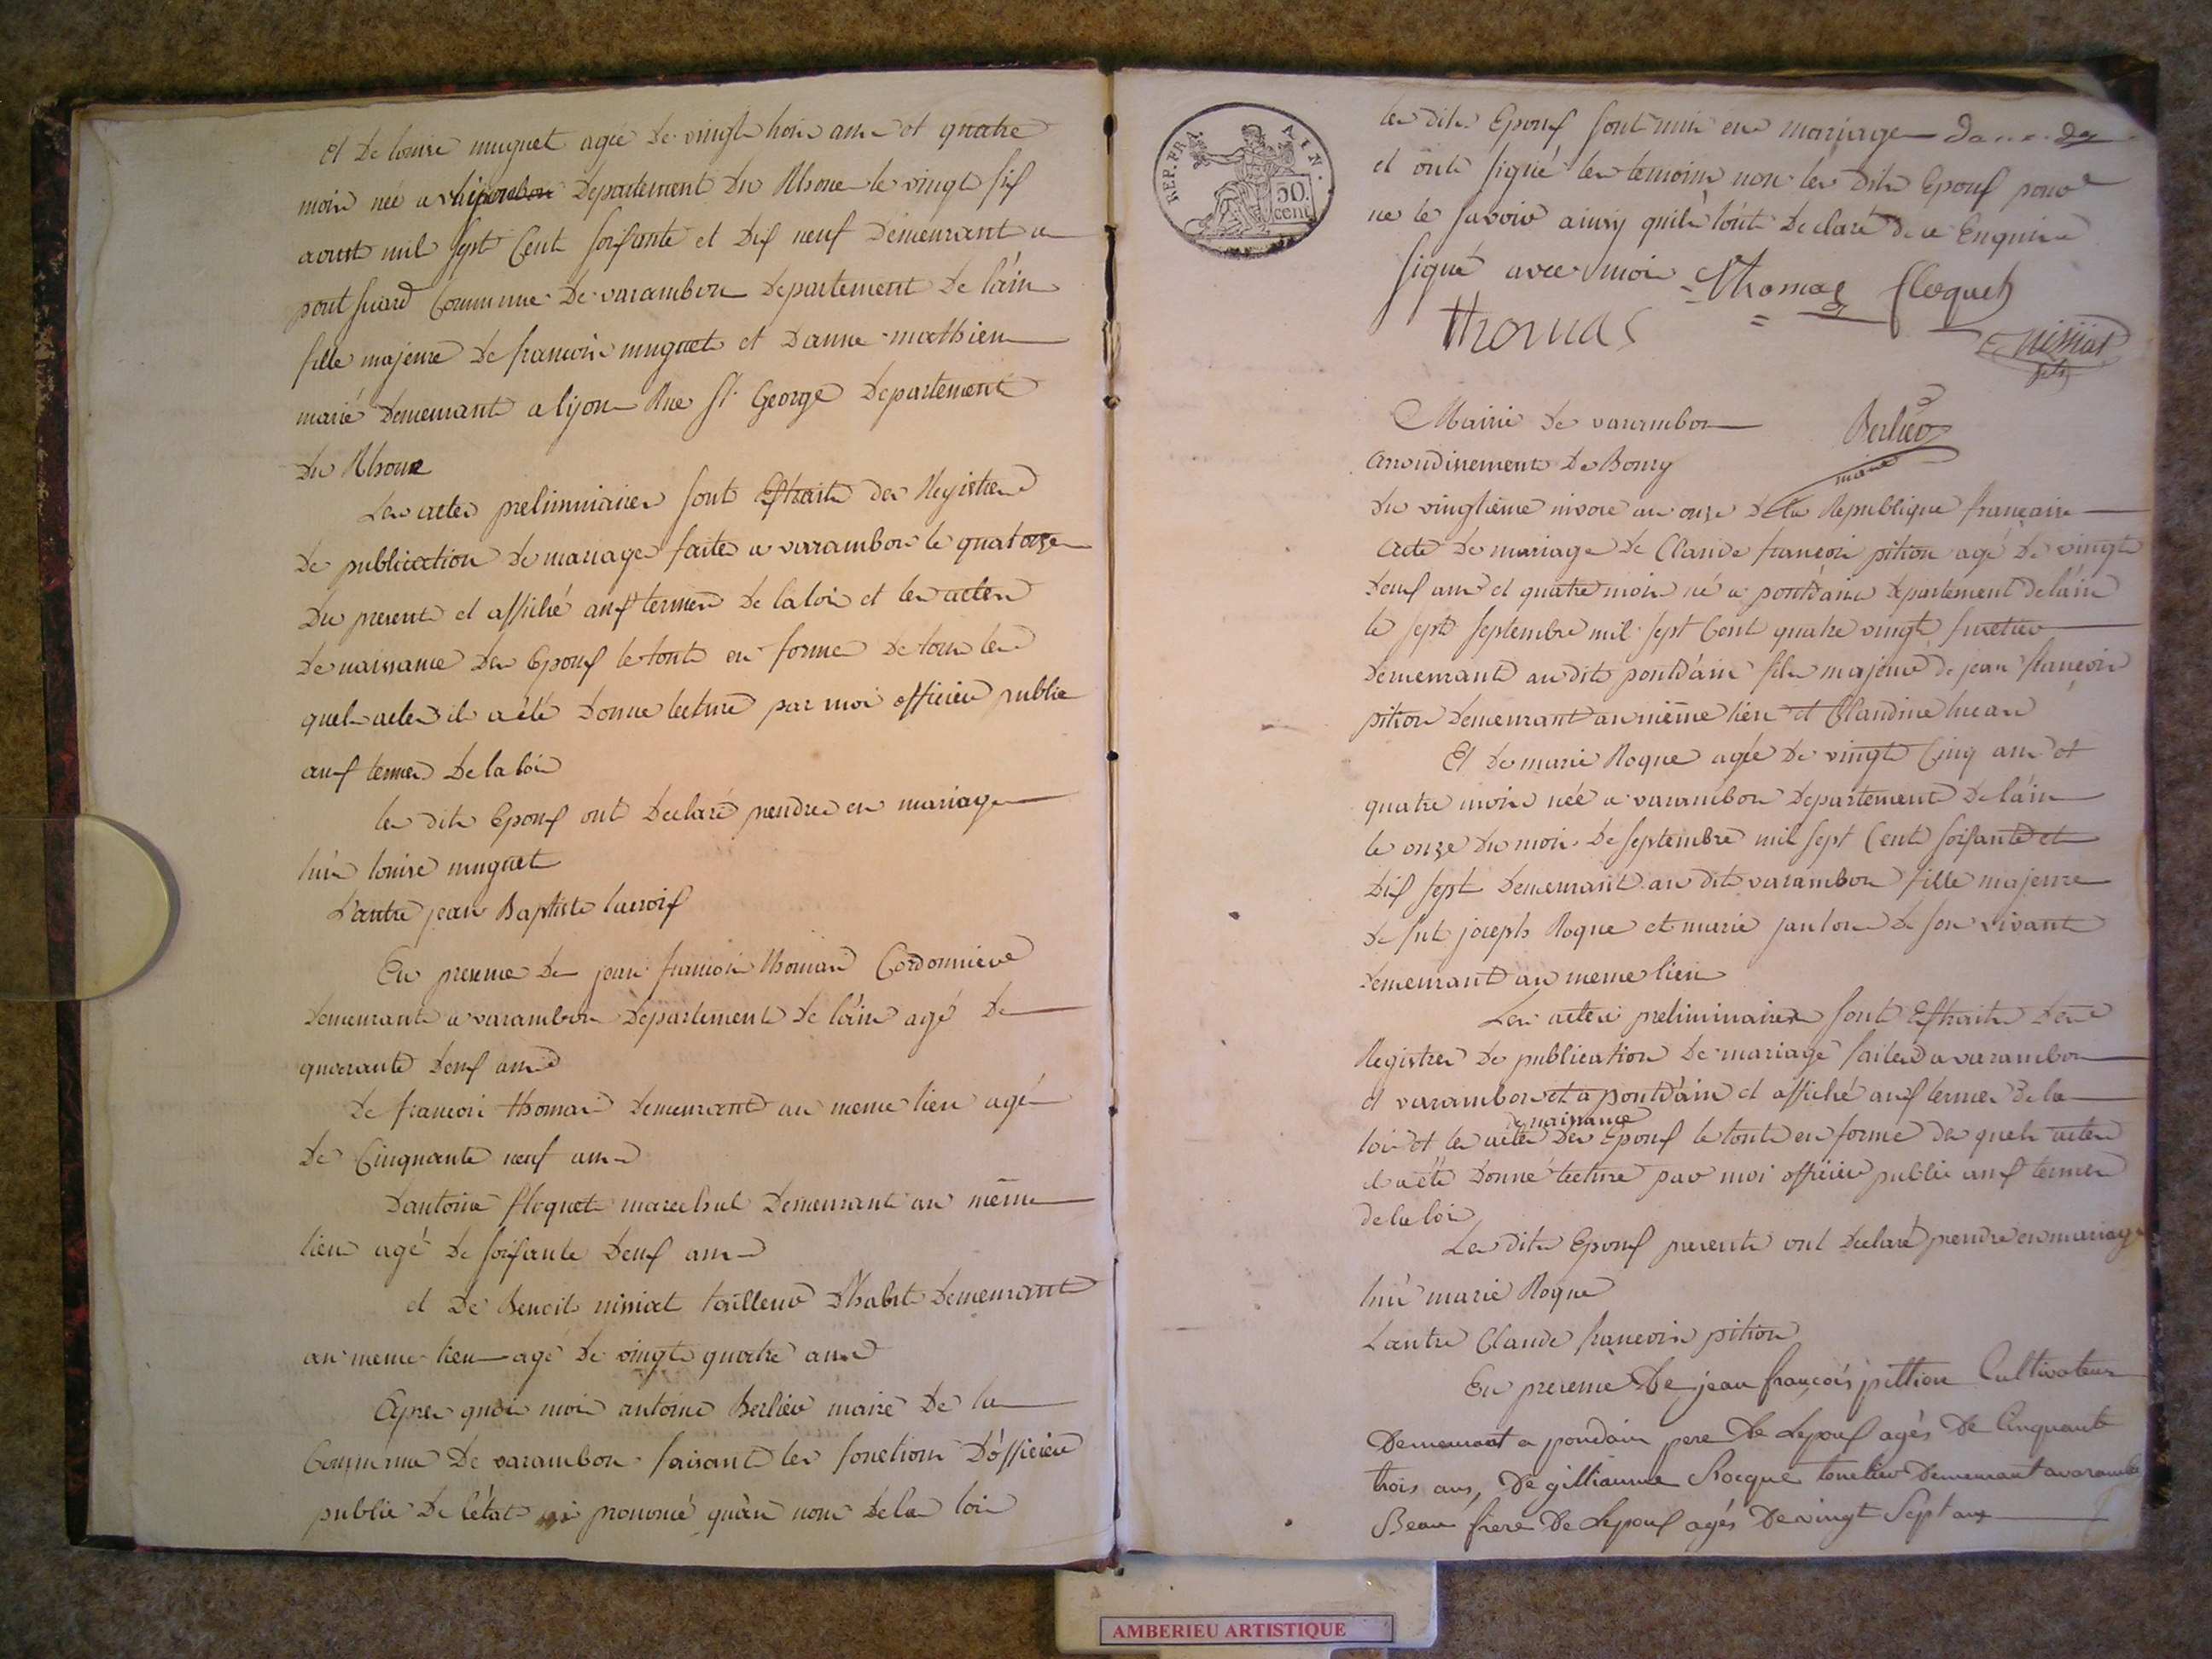 Et De louise muguet agée de vingt trois ans et quatre
mois née a Departement Du Rhone le vingt six
aoust mil sept Cent soixante et dix neuf Demeurant a
pont suard Commune De varambon Departement De l'ain
fille majeure De francois muguet et Danne mathieu
marié Demeurant a lyon Rue St George Departement
Du Rhone
Les actes preliminaires sont Extraits des Registres
De publication De mariage faites a varambon le quatorze
Du present et affiché aux termes De la loi et les actes
De naissance Des Epoux le tout en forme De tous les
quels actes il a été Donne lecture par moi officier public
aux termes De la loi
les dits Epoux ont Declaré prendre en mariage
l'un louise muguet
L'autre jean Baptiste lacroix
En presence De jean francois thomas Cordonnier
Demeurant a varambon Departement De l'ain agé De
quarante Deux ans
De francois thomas Demeurant au meme lieu agé
De Cinquante neuf ans
D'antoine floquet marechal Demeurant au même
lieu agé De soixante Deux ans
et De Benoit nissiat tailleur D'habit Demeurant
au meme lieu agé De vingt quatre ans
Apres quoi moi antoine Berlier maire De la
Commune De varambon faisant les fonctions D'officier
public De l'état ai prononcé qu'au nom De la loi
REP. FRA. AIN.
50 cent
les dits Epoux sont unis en mariage
et ont signé les temoins non les Dits Epoux pour
ne le savoir ainsy quils l'ont Declaré De ce Enquis
signé avec moi Thomas floquet
Thomas
nissiat
Mairie De varambon
Berlier
maire
Arrondissement De Bourg
Du vingtieme nivose an onze De la Republique francaise
Acte De mariage De Claude francois pition agé De vingt
Deux ans et quatre mois né a pontd'ain Departement De l'ain
le sept septembre mil sept Cent quatre vingt
Demeurant au dit pontd'ain fils majeur de jean francois
pition Demeurant au même lieu et Claudine
Et De marie Roque agée De vingt Cinq ans et
quatre mois née a varambon Departement De l'ain
le onze Du mois De septembre mil sept Cent soixante et
Dix sept Demeurant au dit varambon fille majeure
De fut joseph Roque et marie janton De son vivant
Demeurant au meme lieu
Les actes preliminaires sont Extraits Des
Registres De publication De mariage faites a varambon
et varambon et a pontd'ain et affiché aux termes De la
de naissance
loi et les actes Des Epoux le tout en forme Des quels actes
il a été Donné lecture par moi officier public aux termes
de la loi
Les Dits Epoux presents ont Declaré prendre en mariage
l'un marie Roque
L'autre Claude francois pition
En presence De jean françois pittion Cultivateur
Demeurant a pondain pere De Lepoux agés De Cinquante
trois ans, De gilliaume Rocque tonelier Demeurant a varambon
Beau frere De Lepoux agés De vingt Sept ans
AMBERIEU ARTISTIQUE